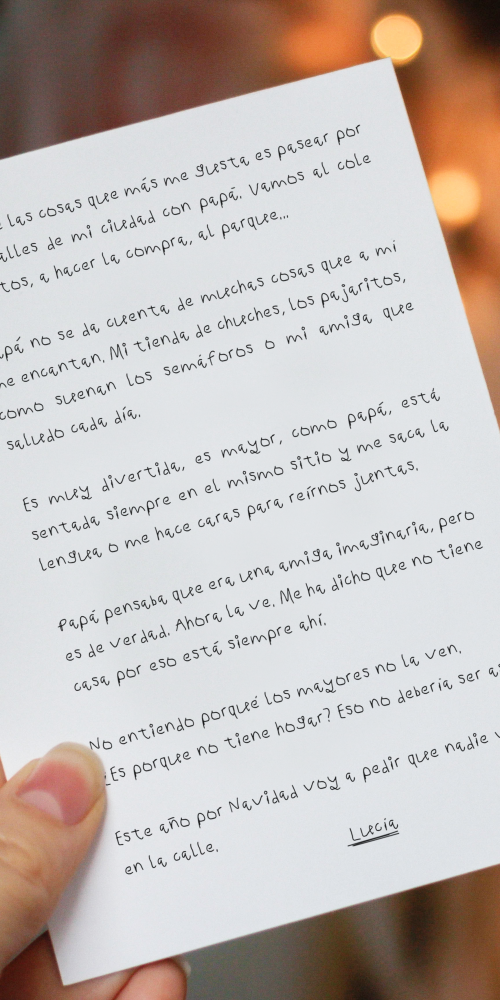 las cosas que más me gusta es pasear por
de mi ciudad con papá. Vamos al cole
a hacer la compra, al parque...
no se da cuenta de muchas cosas que a mi
encantan. Mi tienda de chuches, los pajaritos,
como suenan los semáforos o mi amiga que
saludo cada día.
Es muy divertida, es mayor, como papá, está
sentada siempre en el mismo sitio y me saca la
lengua o me hace caras para reírnos juntas.
Papá pensaba que era una amiga imaginaria, pero
es de verdad. Ahora la ve. Me ha dicho que no tiene
casa por eso está siempre ahí.
No entiendo porqué los mayores no la ven.
¿Es porque no tiene hogar? Eso no debería ser
Este año por Navidad voy a pedir que nadie
en la calle.
Lucía